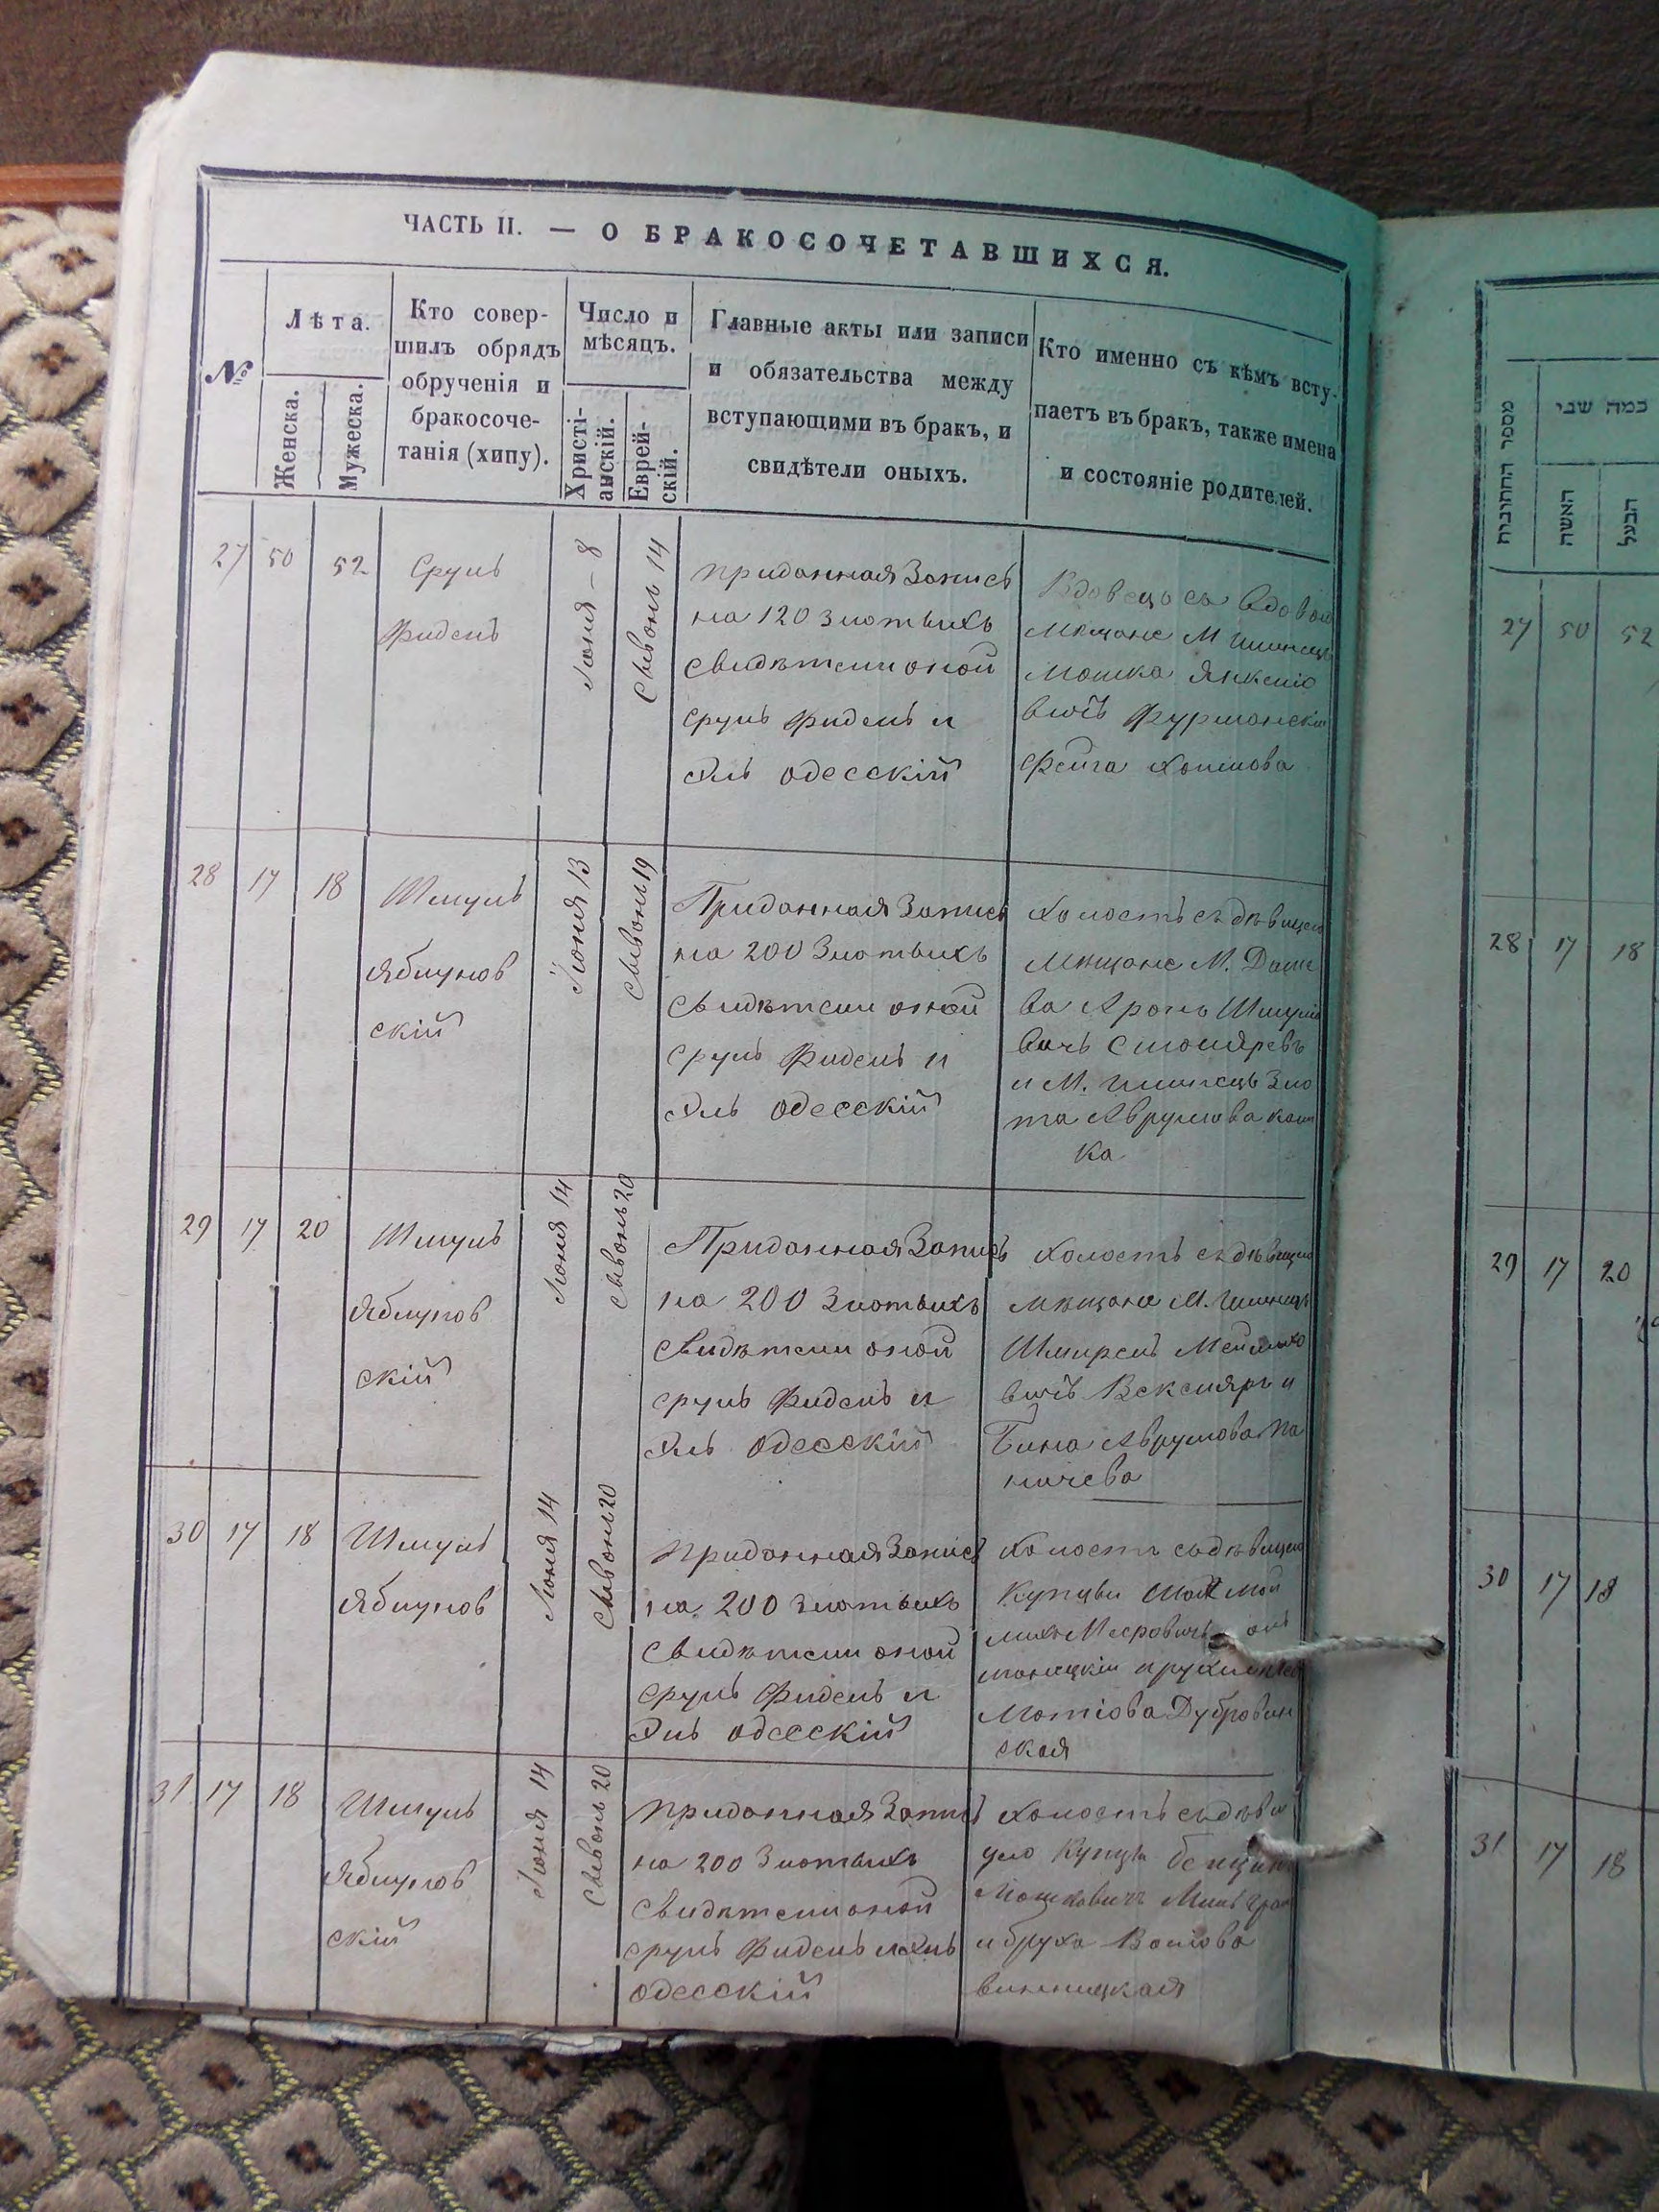 ЧАСТЬ II. — О БРАКОСОЧЕТАВШИХСЯ.
№
Лѣта.
Женска.
Мужеска.
Кто совер-
шилъ обрядъ
обрученія и
бракосоче-
танія (хипу).
Число и
мѣсяцъ.
Христі-
анскій.
Еврей-
скій.
Главные акты или записи
и обязательства между
вступающими въ бракъ, и
свидѣтели оныхъ.
Кто именно съ кѣмъ всту-
паетъ въ бракъ, также имена
и состояніе родителей.
27 50 52
Сруль
Фидель
Іюня – 8
Сывонъ 14
приданная Запись
на 120 злотыхъ
Свидѣтели оной
Сруль Фидель и
Эль Одесскій
Вдовецъ съ вдовою
Мѣщане М
Мошка Янкеліо
вичъ Фурманскій
Фейга Хаимова
28 17 18
Шмуль
Яблунов
скій
Іюня 13
Сывонъ 19
Приданная Запись
на 200 Злотыхъ
Свидѣтели оной
Сруль Фидель и
Эль Одесскій
Холостъ съ дѣвицею
Мѣщане М. Даше
ва Аронъ Шмуліо
вичъ Столяревъ
и М. Зло
та Аврумова
ка
29 17 20
Шмуль
Яблунов
скій
Іюня 14
Сывонъ 20
Приданная Запись
на 200 Злотыхъ
Свидѣтели оной
Сруль Фидель и
Эль Одесскій
Холостъ съ дѣвицею
Мѣщане М.
вичъ Векслярь и
Бина Аврумова Па
ничева
30 17 18
Шмуль
Яблунов
Іюня 14
Сывонъ 20
приданная Запись
на 200 злотыхъ
Свидѣтели оной
Сруль Фидель и
Эль Одесскій
Холостъ съ дѣвицею
Купцы
Мееровичъ
Мотіова Дубровин
ская
31 17 18
Шмуль
Яблунов
скій
Іюня 14
Сывонъ 20
приданная Запись
на 200 Злотыхъ
Свидѣтели оной
Сруль Фидель и Эль
Одесскій
Холостъ съ дѣви
цею Купцы
Мошковичъ
и бруха Волова
винницкая
מספר החתונות
כמה שני
האשה
הבעל
27 50 52
28 17 18
29 17 20
30 17 18
31 17 18